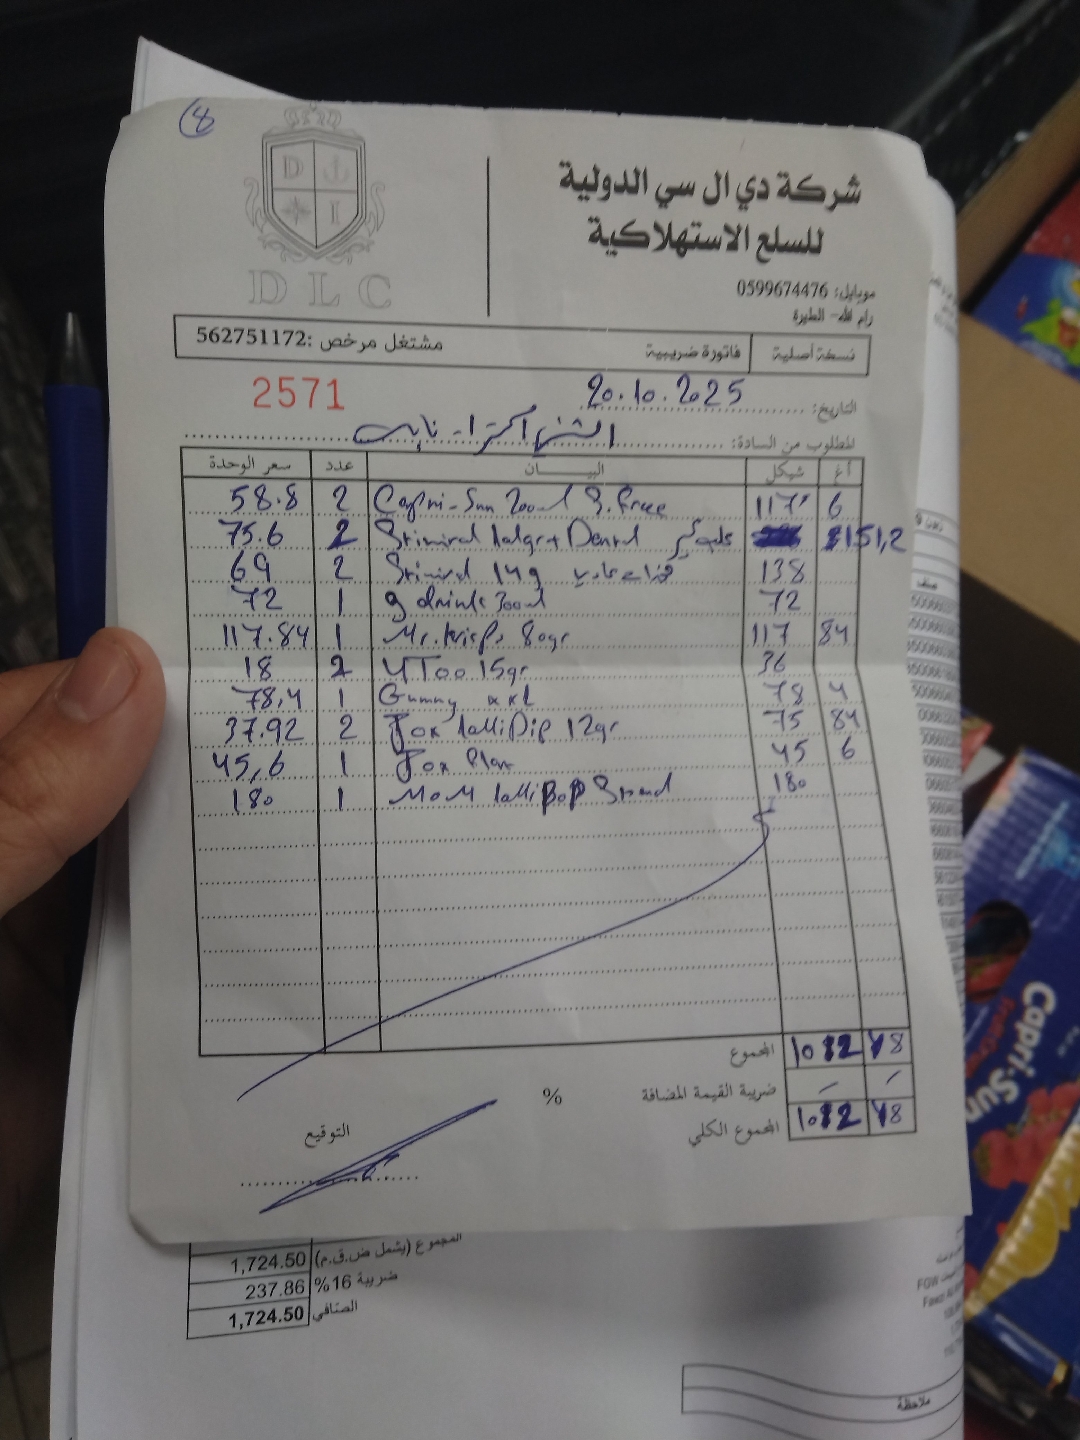 8
D I
D L C
شركة دي ال سي الدولية
للسلع الاستهلاكية
موبايل: 0599674476
رام الله- الطيرة
نسخة أصلية فاتورة ضريبية مشتغل مرخص :562751172
2571
التاريخ: 20.10.2025
المطلوب من السادة: اكسترا - نابلس
أغ شيكل البيـــان عدد سعر الوحدة
58.8 2 Capri-Sun 200ml S.Free 117 6
75.6 2 Dental 151,2
69 2 14g 138
72 1 g drink 300ml 72
117.84 1 Mr. Krisps 80gr 117 84
18 2 UToo 15gr 36
78,4 1 Gummy xxl 78 4
37.92 2 Fox lolliDip 12gr 75 84
45,6 1 Fox 45 6
180 1 MoM lolliPoP 180
المجموع 78
ضريبة القيمة المضافة %
المجموع الكلي 78
التوقيع
1,724.50 المجموع (يشمل ض.ق.م)
237.86 ضريبة 16%
1,724.50 الصافي
ملاحظة
Capri-Sun